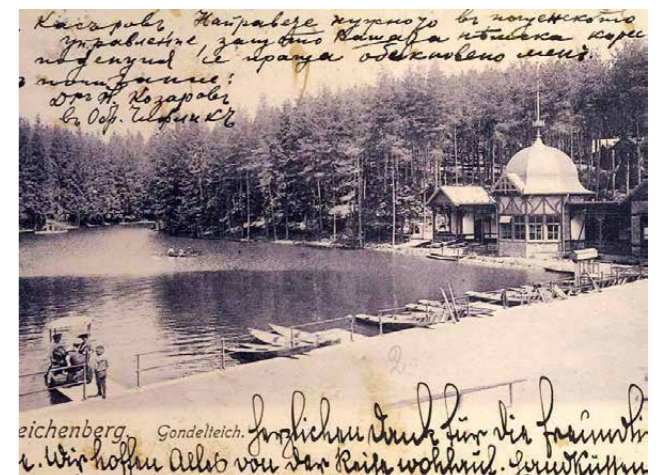 Касъровъ. Направете нужното въ пощенското
управление, защото Вашата кореc
се праща обикновено
Н. Козаровъ
въ Обр. Чифликъ
2
eichenberg. Gondelteich. Herzlichen Dank für die freundli
e. Wir hoffen Alles von der Reise wohlauf. Handküssen